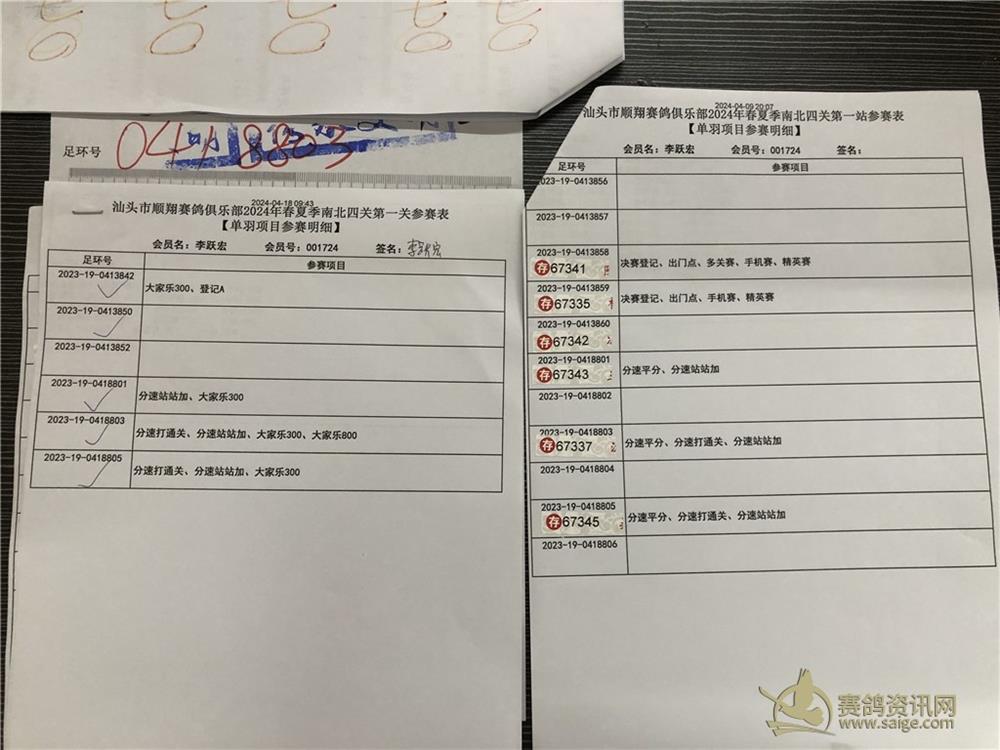 足环号 0418803
2024-04-18 09:43
汕头市顺翔赛鸽俱乐部2024年春夏季南北四关第一关参赛表
【单羽项目参赛明细】
会员名：李跃宏 会员号：001724 签名：李跃宏
足环号 参赛项目
2023-19-0413842 大家乐300、登记A
2023-19-0413850
2023-19-0413852
2023-19-0418801 分速站站加、大家乐300
2023-19-0418803 分速打通关、分速站站加、大家乐300、大家乐800
2023-19-0418805 分速打通关、分速站站加、大家乐300
2024-04-09 20:07
汕头市顺翔赛鸽俱乐部2024年春夏季南北四关第一站参赛表
【单羽项目参赛明细】
会员名：李跃宏 会员号：001724 签名：
足环号 参赛项目
2023-19-0413856
2023-19-0413857
2023-19-0413858
存67341 决赛登记、出门点、多关赛、手机赛、精英赛
2023-19-0413859
存67335 决赛登记、出门点、手机赛、精英赛
2023-19-0413860
存67342
2023-19-0418801
存67343 分速平分、分速站站加
2023-19-0418802
2023-19-0418803
存67337 分速平分、分速打通关、分速站站加
2023-19-0418804
2023-19-0418805
存67345 分速平分、分速打通关、分速站站加
2023-19-0418806
赛鸽资讯网
www.saige.com